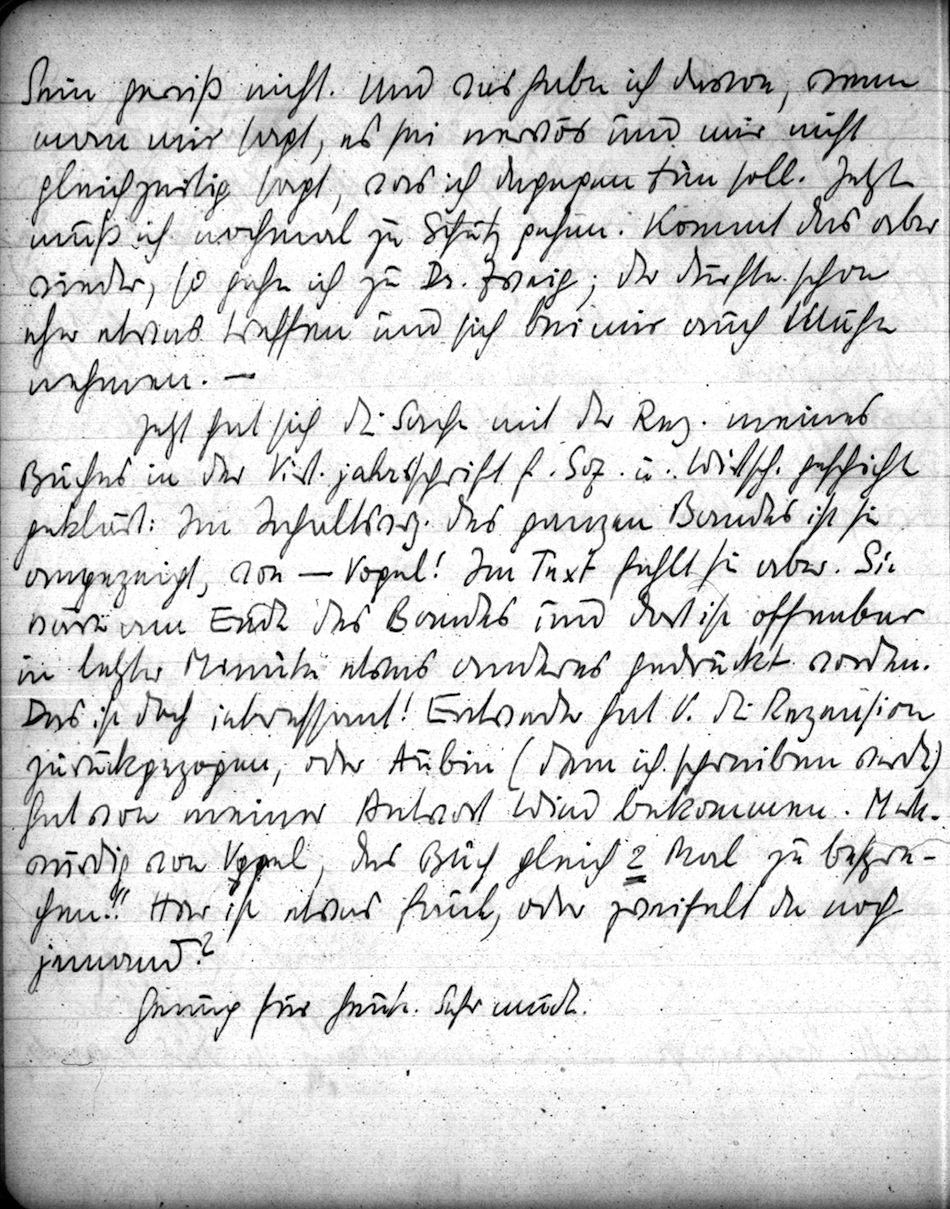 Sein gewiß nicht. Und was habe ich davon, wenn
man mir sagt, es sei nervös und mir nicht
gleichzeitig sagt, was ich dagegen tun soll. Jetzt
muß ich nochmal zu Schütz gehen. Kommt das aber
wieder, so gehe ich zu Dr. Zweig; der dürfte schon
eher etwas treffen und sich bei mir auch Mühe
nehmen. —
Jetzt hat sich die Sache mit der Rez. meines
Buches in der Viert. jahrsschrift f. Soz. u. Wirtsch. geschicht
geklärt: Im Inhaltsverz. des ganzen Bandes ist sie
angezeigt, von — Vogel! Im Text fehlt sie aber. Sie
wäre am Ende des Bandes und dort ist offenbar
in letzter Minute etwas anderes gedruckt worden.
Das ist doch interessant! Entweder hat V. die Rezension
zurückgezogen, oder Aubin (dem ich schreiben werde)
hat von meiner Antwort Wind bekommen. Merk-
würdig von Vogel, das Buch gleich 2 Mal zu bespre-
chen!! Hier ist etwas faul, oder zweifelt da noch
jemand?
Genug für heute. Sehr müde.